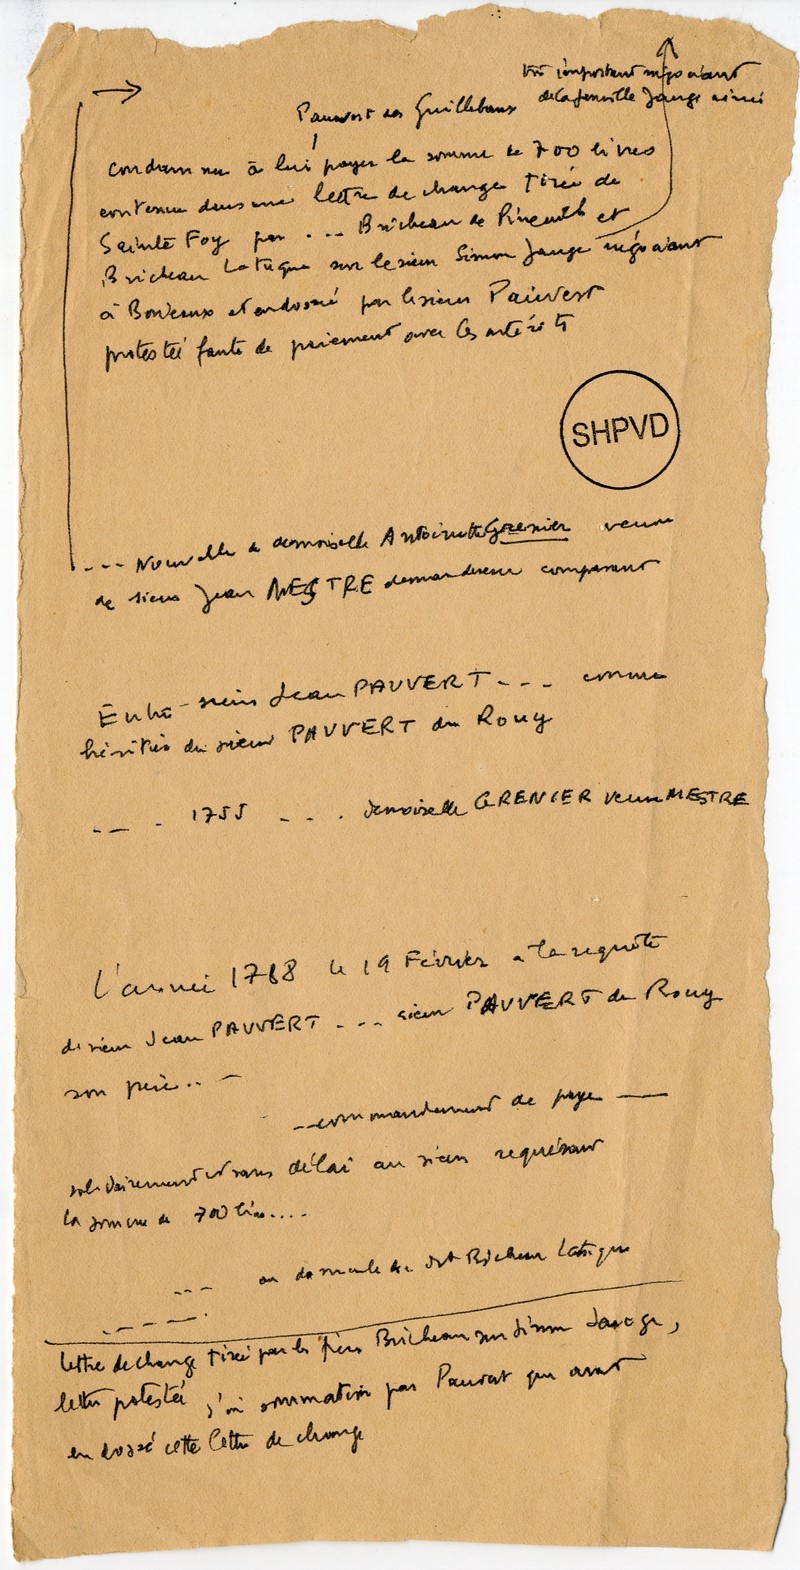 très important négociant
de la famille Jauge ainé
Pauvert des Guillebaux
condamne à lui payer la somme de 700 livres
contenue dans une lettre de change tirée de
Sainte Foy par ... Bricheau de et
Bricheau Latuque sur le sieur Simon Jauge négociant
à Bordeaux et endossé par le sieur Pauvert
protestée faute de paiement avec les intérêts
SHPVD
--- Nouvelle de demoiselle Antoinette Grenier veuve
de sieur Jean MESTRE demanderesse comparant
Entre sieur Jean PAUVERT --- comme
héritier du sieur PAUVERT du Rouy
-- - 1755 - - . demoiselle GRENIER veuve MESTRE
L'année 1768 le 19 Février a la requête
de sieur Jean PAUVERT --- sieur PAUVERT du Rouy
son père.. -
--commandement de paye —
solidairement et sans délai au sieur requérant
la somme de 700 livres....
--- au domicile du dit Bricheau Latuque
-----
lettre de change tirée par les frères Bricheau sur Simon Jauge,
lettre protestée sommation par Pauvert qui avait
endossé cette lettre de change